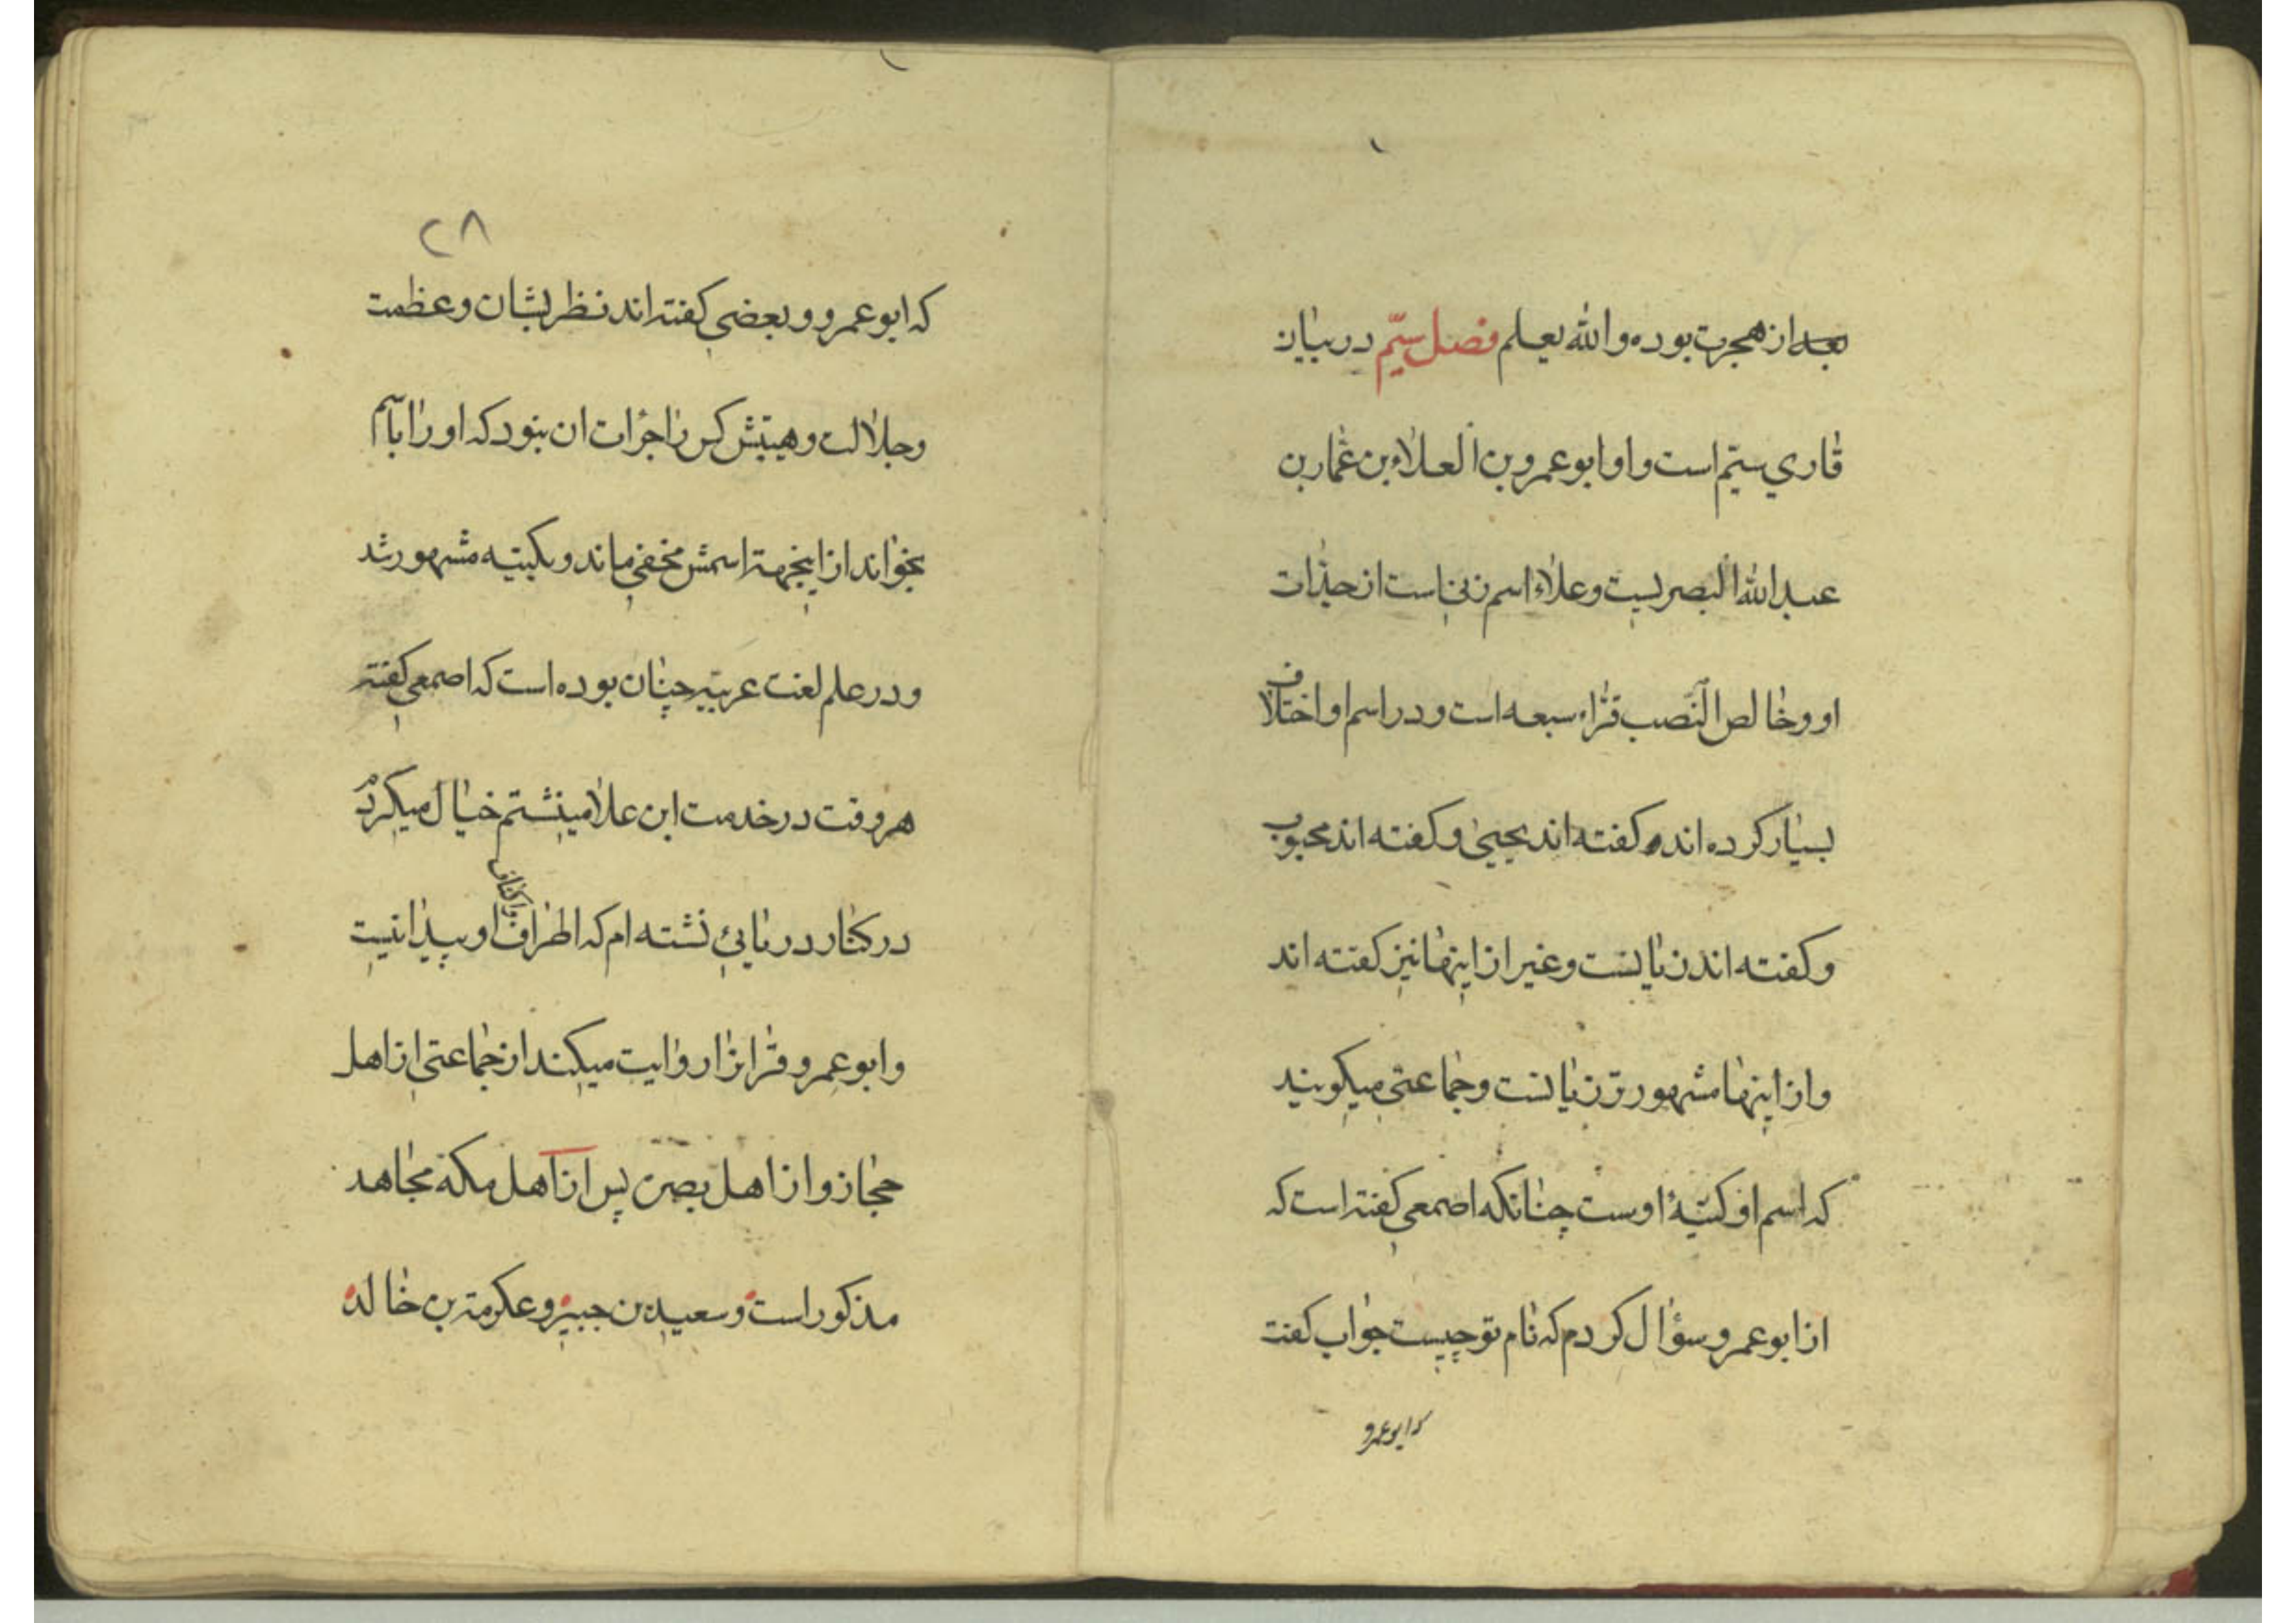 بعد از هجرت بوده والله يعلم فصل سيّم در بيان
قاري سيّم است و او ابو عمرو بن العلاء بن عمار بن
عبد الله البصريست و علاء اسم زنی است از جدّات
او و خالص النّصب قرّاء سبعه است و در اسم او اختلاف
بسيار کرده اند و کفته اند يحيی و کفته اند محبوب
و کفته اند زبانست و غير از اينها نيز کفته اند
و از اينها مشهورتر زبانست و جماعتی ميکويند
که اسم او کنيۀ اوست چنانکه اصمعي کفته است که
از ابو عمرو سؤال کردم که نام تو چيست جواب کفت
که ابو عمرو
۲۸
که ابو عمرو و بعضي کفته اند نظر بشان و عظمت
و جلالت و هيبتش کس را جرأت ان نبود که او را باسم
بخواند از اينجهة اسمش مخفي ماند و بکنيه مشهور شد
و در علم لغت عربيّه چنان بوده است که اصمعي کفته
هر وقت در خدمت ابن علا مينشستم خيال ميکردم
در کنار دريائي نشسته ام که اطراف او پيدا نيست
و ابو عمرو قرائرا روايت ميکند از جماعتی از اهل
حجاز و از اهل بصره پس از اهل مکه مجاهد
مذکور است و سعيد بن جبير و عکرمة بن خالد